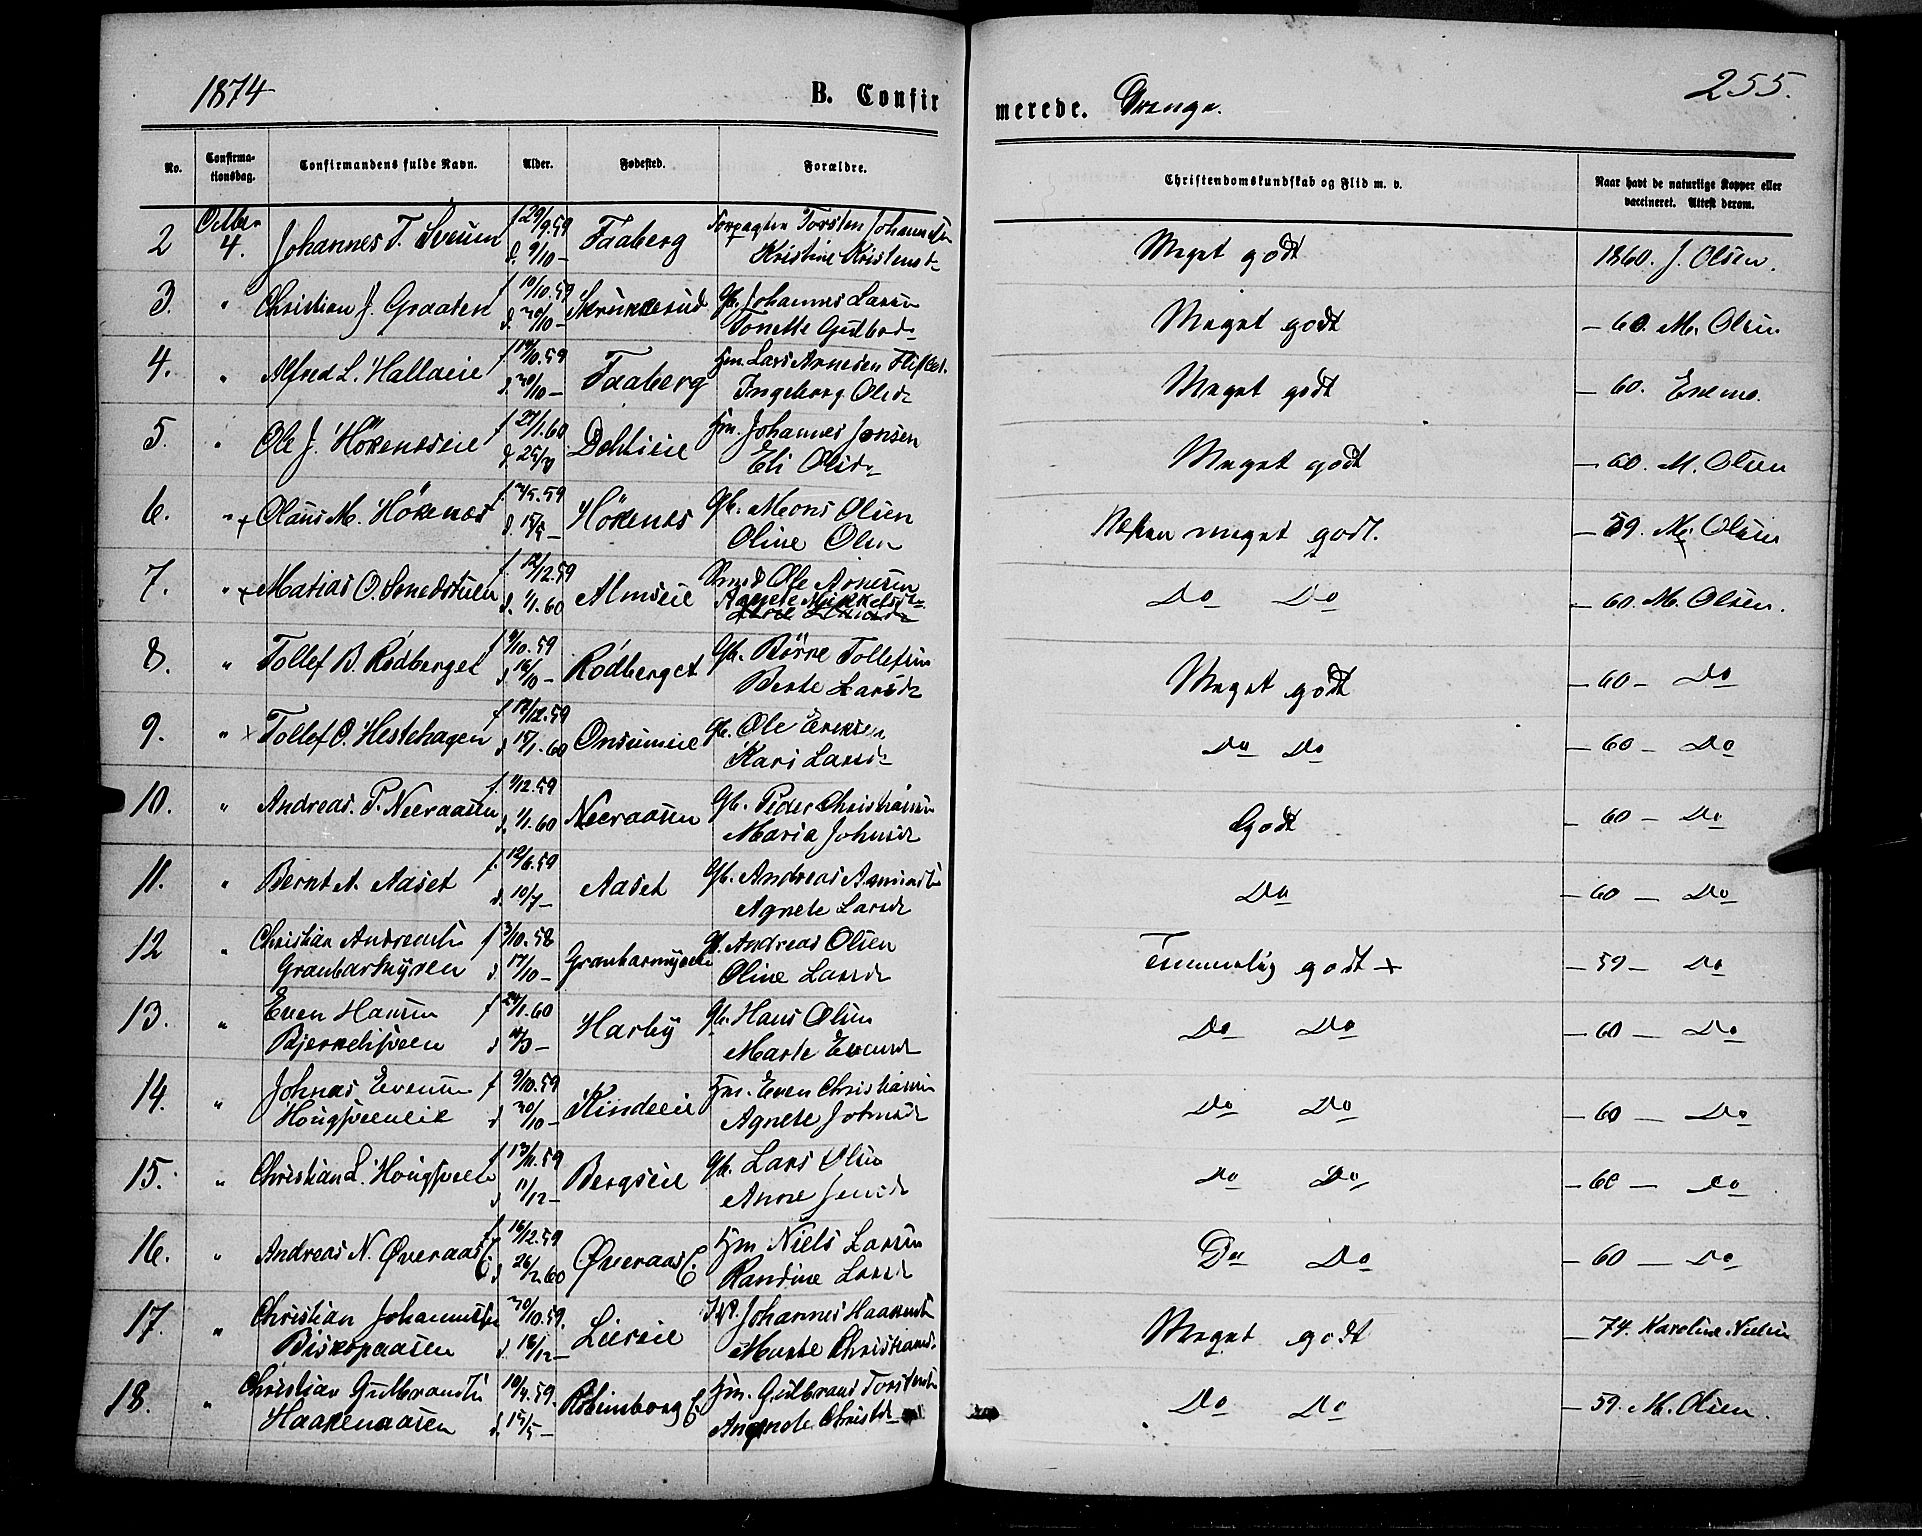 1874
B. Confirmerede. Drenge.
255.
No. Confirmationsdag. Confirmandens fulde Navn. Alder. Fødested. Forældre. Christendomskundskab og Flid m. v. Naar havt de naturlige Kopper eller vaccineret. Attest derom.
2 Octber 4. Johannes T. Sveum f 29/9.59 d. 9/10 – Faaberg Forpagter Torsten Johannesen Kristine Kristensd. Meget godt 1860. J. Olsen.
3. " Christian J. Graaten f 10/10.59 d. 30/10 – Skrukkerud Gb. Johannes Larsen Tonette Gulbrd. Meget godt – 60. M. Olsen
4. " Alfred L. Hallaeie f 14/10.59 d. 30/10 – Faaberg Hm. Lars Arnesen Ingeborg Olsd. Meget godt – 60. Enemo.
5. " Ole J. Hökeneseie f 27/1.60 d. 25/3 Dehlieie Hm. Johannes Jonsen Eli Olsd. Meget godt – 60. M. Olsen
6. " + Olaus M. Hökenes f. 3/5.59 d. 15/5 – Hökenes Gb. Mons Olsen Oline Olsn Næsten meget godt. – 59. M. Olsen
7. " + Matias O. Smedstuen f. 12/12.59 d. 1/1.60 Almseie Smed Ole Arnesen Agnete Mikkelsd. Do Do – 60. M. Olsen.
8. " Tollef B. Rødberget f 9/10.59 d 16/10 – Rödberget Gb. Börre Tollefsen Berte Larsd. Meget godt – 60 – Do
9. " × Tollef O. Hestehagen f 17/12.59 d 15/1.60 Onsumeie Gb. Ole Ericksen Kari Larsd. Do Do – 60 – Do
10. " Andreas. P. Neeraasen f. 1/12.59 d. 1/1.60 Neeraasen Gb. Peder Christiansen Maria Johnsd. Godt – 60 – Do
11. " Bernt A. Aaset f. 12/6.59 d. 10/7 – Aaset Gb. Andreas Amundsn Agnete Larsd. Do – 60 – Do
12 " Christian Andreasen Granbarmyren f 3/10.58 d 17/10 – Granbarmyren Gb. Andreas Olsen Oline Larsd. Temmelig godt + – 59 – Do
13. " Even Hansen Bjerkelisveen f 24/1.60 Harby Gb. Hans Olsen Marte Evensd. Do Do – 60 – Do
14. " Johnas Evensen Hougsveeneie f 9/10.59 d 30/10 – Kindseie Hm. Even Christiansn Agnete Johnsd. Do Do – 60 – Do
15. " Christian L. Hougsveen f 13/11.59 d 11/12 – Bergseie Gb. Lars Olsen Anne Jensd. Do Do – 60 – Do
16. " Andreas N. Øveraas E. f. 16/12.59 d 26/2.60 Øveraas E. Hm Niels Larsen Randine Larsd. Do Do – 60 – Do
17. " Christian Johannessen Biskopaasen 30/10.59. d. 18/12 – Lieseie Johannes Haakensn Marte Christiansd. Meget godt – 74. Karoline Nielsen
18. " Christian Gulbrandsen Haakenaasen 10/4.59. d. 15/5 – Hm. Gulbrand Torstensn Agnete Christd. Do Do – 59. M. Olsen.